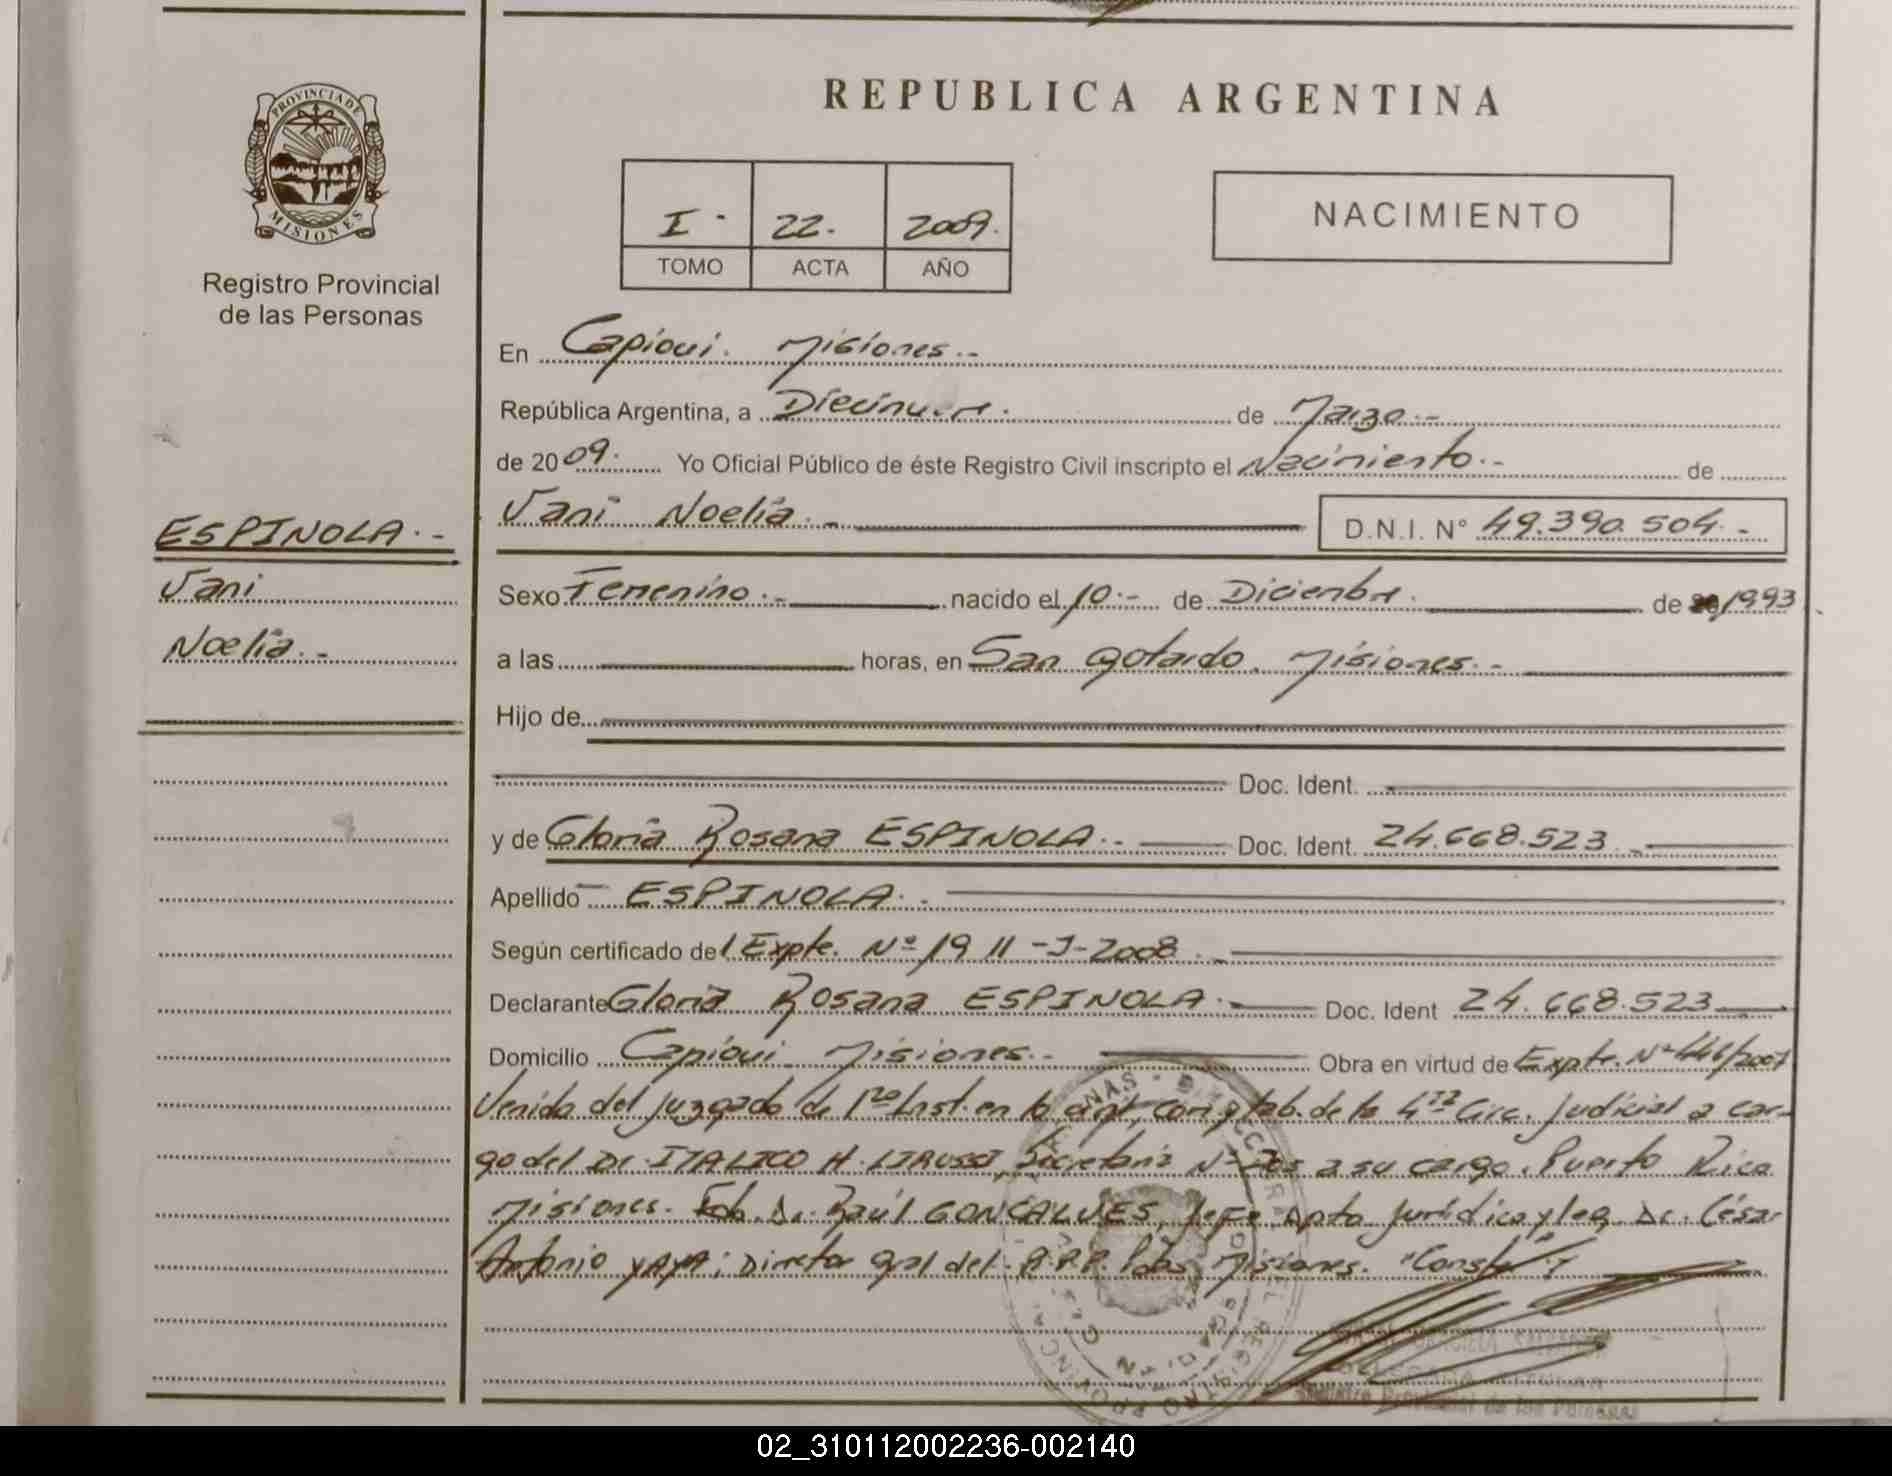 PROVINCIA DE
MISIONES
Registro Provincial
de las Personas
REPUBLICA ARGENTINA
I. 22. 2009.
TOMO ACTA AÑO
NACIMIENTO
En Capiovi. Misiones.-
República Argentina, a Diecinueve. de Marzo.-
de 2009. Yo Oficial Público de éste Registro Civil inscripto el Nacimiento.- de
Jani Noelia.- D.N.I. N° 49.390.504.-
ESPINOLA.-
Jani
Noelia.-
Sexo Femenino.- nacido el 10.- de Diciembre. de 1993
a las horas, en San Gotardo. Misiones.-
Hijo de
Doc. Ident.
y de Gloria Rosana ESPINOLA.- Doc. Ident. 24.668.523.-
Apellido ESPINOLA.-
Según certificado del Expte. Nº 1911-J-2008.-
Declarante Gloria Rosana ESPINOLA.- Doc. Ident 24.668.523
Domicilio Capiovi Misiones.- Obra en virtud de Expte. Nº 446/2007
Venido del Juzgado de 1ra Inst. en lo civil, com y lab. de la 4ta Circ. Judicial a car-
go del Dr. ITALICO H. Secretaria Nº a su cargo. Puerto Rico
Misiones. Fdo. Dr. Raúl GONCALVES, Jefe Dpto Jurídico y leg. Dr. César
Antonio YAYA; Director gral del R.P.P. Pdas Misiones. "Conste".
Registro Provincial de las Personas
02_310112002236-002140